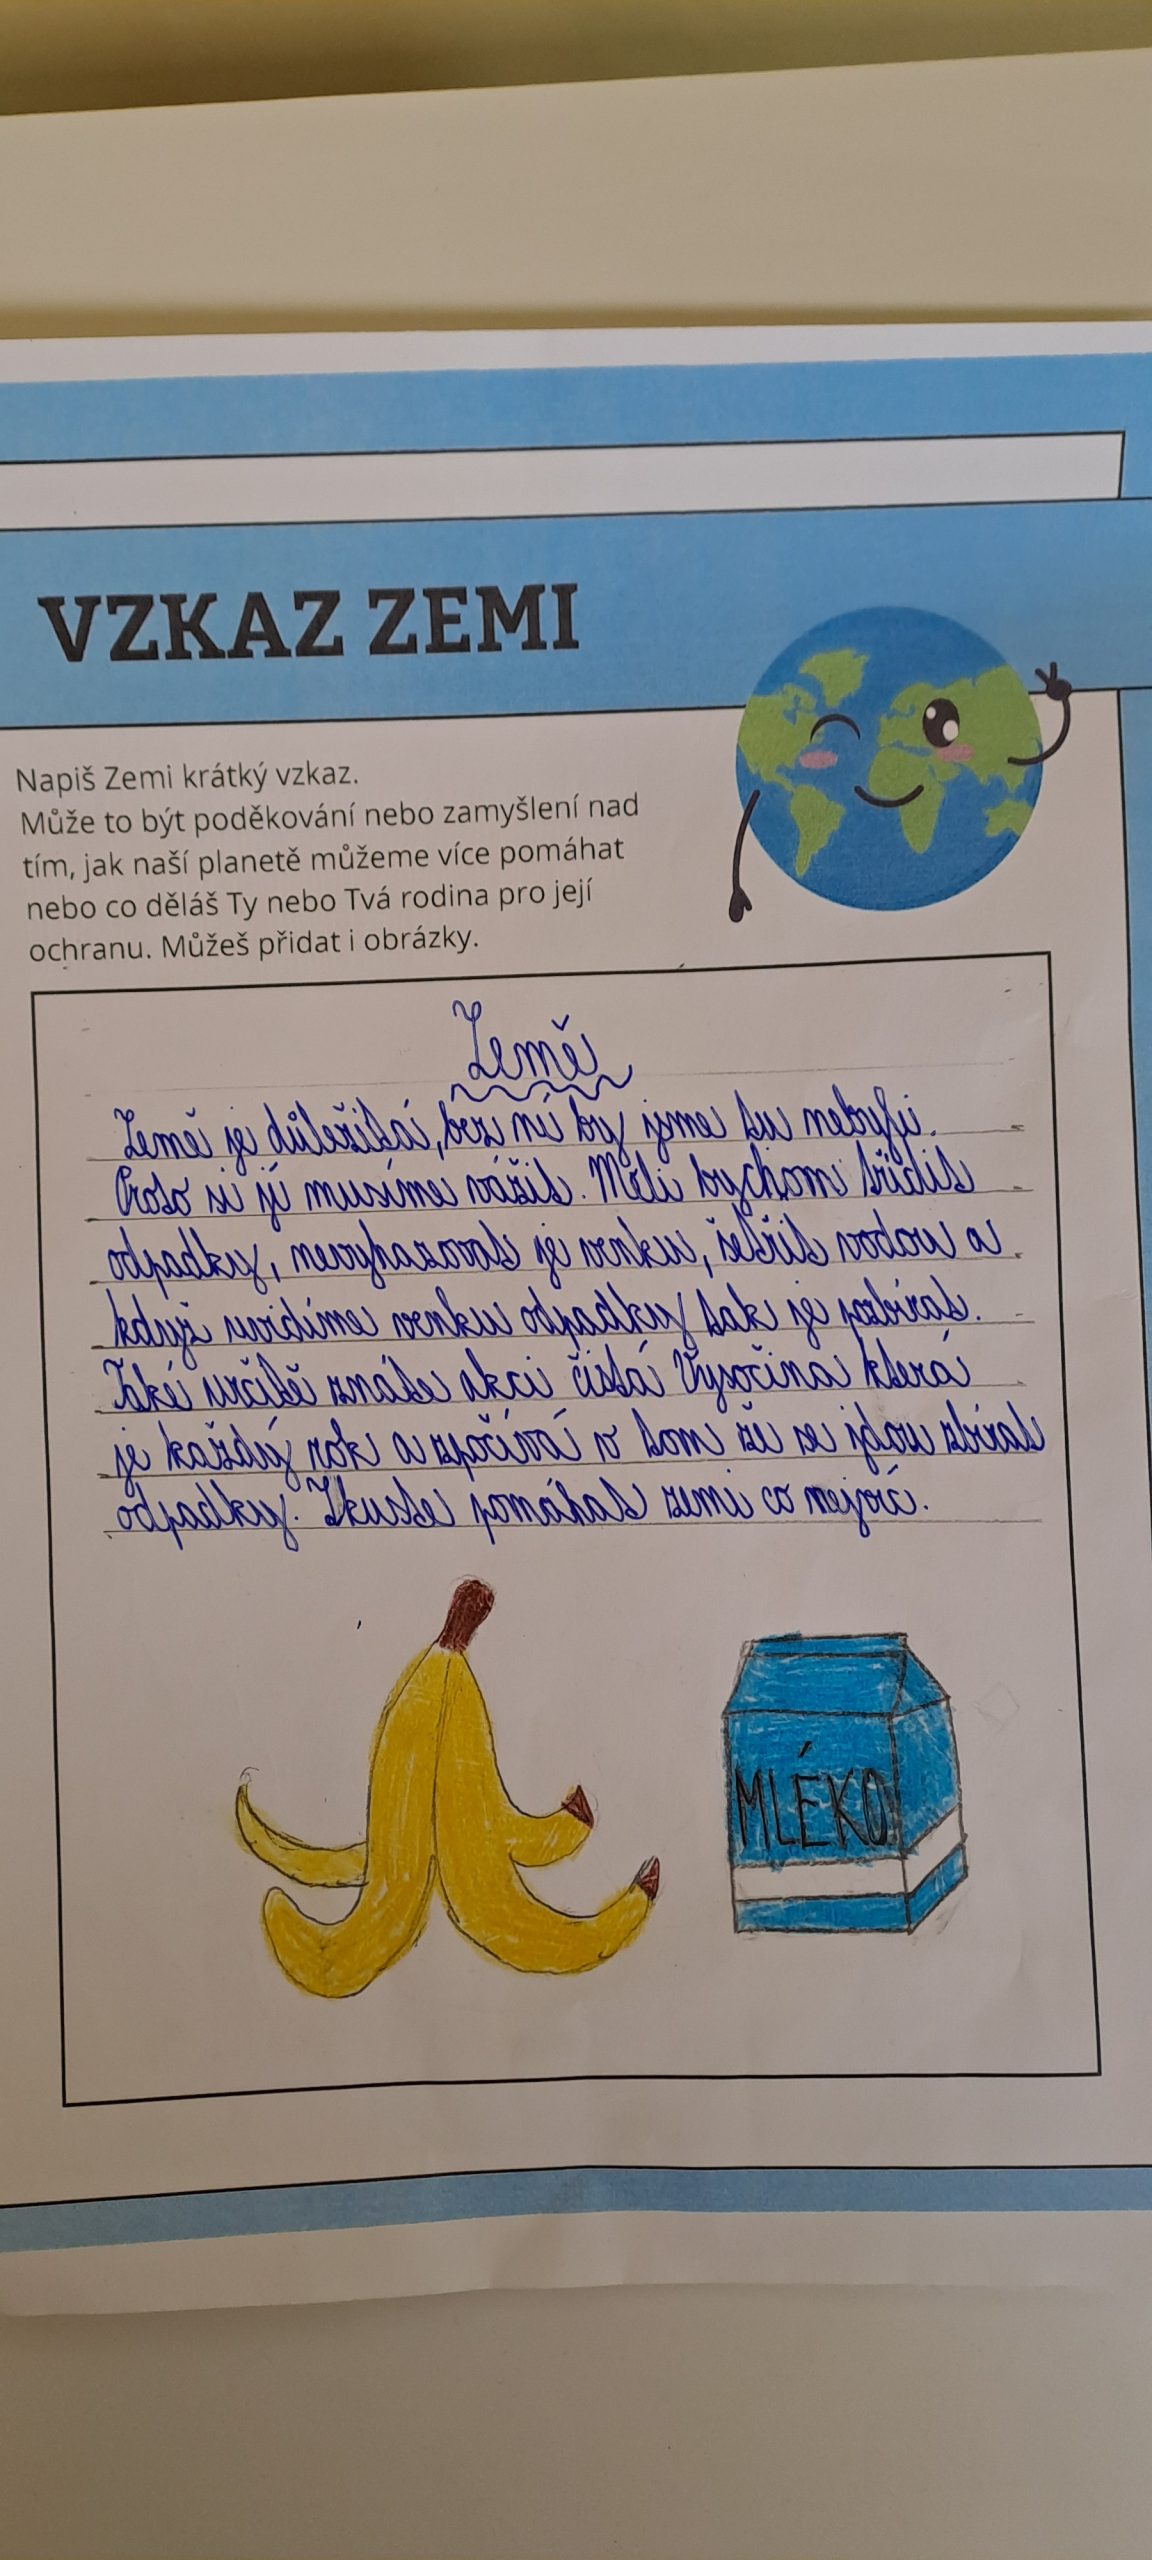 VZKAZ ZEMI
Napiš Zemi krátký vzkaz.
Může to být poděkování nebo zamyšlení nad
tím, jak naší planetě můžeme více pomáhat
nebo co děláš Ty nebo Tvá rodina pro její
ochranu. Můžeš přidat i obrázky.
Země
Země je důležitá, bez ní by jsme tu nebyli.
Proto si jí musíme vážit. Měli bychom třídit
odpadky, nevyhazovat je venku, šetřit vodou a
když uvidíme venku odpadky tak je posbírat.
Také určitě znáte akci čistá Vysočina která
je každý rok a spočívá v tom že se jdou sbírat
odpadky. Zkuste pomáhat zemi co nejvíc.
MLÉKO